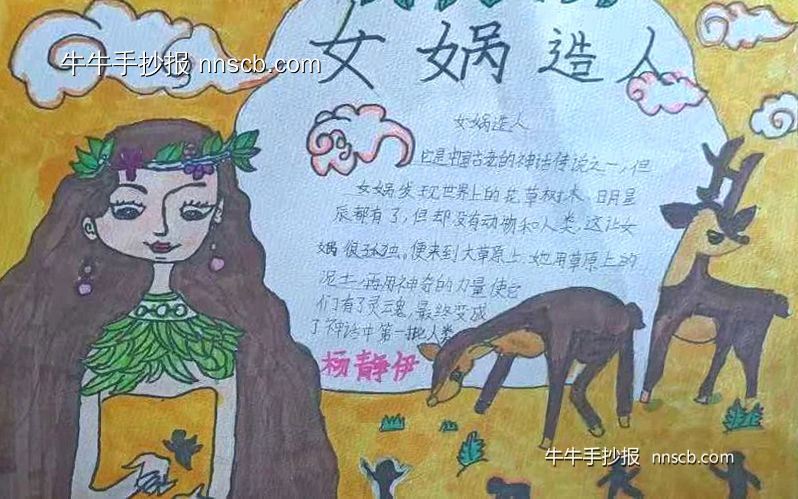 牛牛手抄报 nnscb.com
女娲造人
女娲造人
它是中国古老的神话传说之一，但
女娲发现世界上的花草树木、日月星
辰都有了，但却没有动物和人类，这让女
娲很孤独。便来到大草原上，她用草原上的
泥土，再用神奇的力量使它
们有了灵魂，最终变成
了神话中第一批人类
杨静伊
牛牛手抄报 nnscb.com